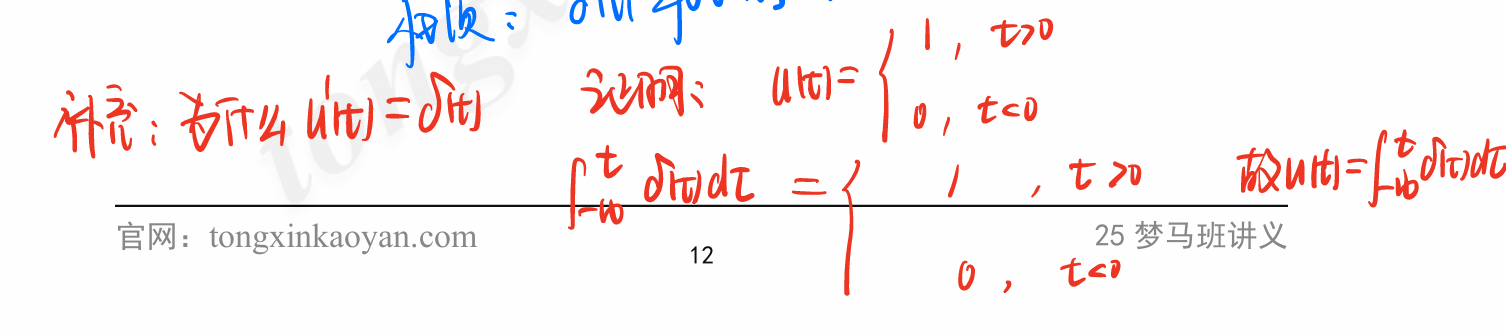 性质：
补充：为什么 u'(t)=δ(t)
证明： u(t)= { 1 , t>0
0 , t<0
∫_{-∞}^{t} δ(τ)dτ = { 1 , t>0
0 , t<0
故u(t)=∫_{-∞}^{t} δ(τ)dτ
官网：tongxinkaoyan.com
12
25 梦马班讲义